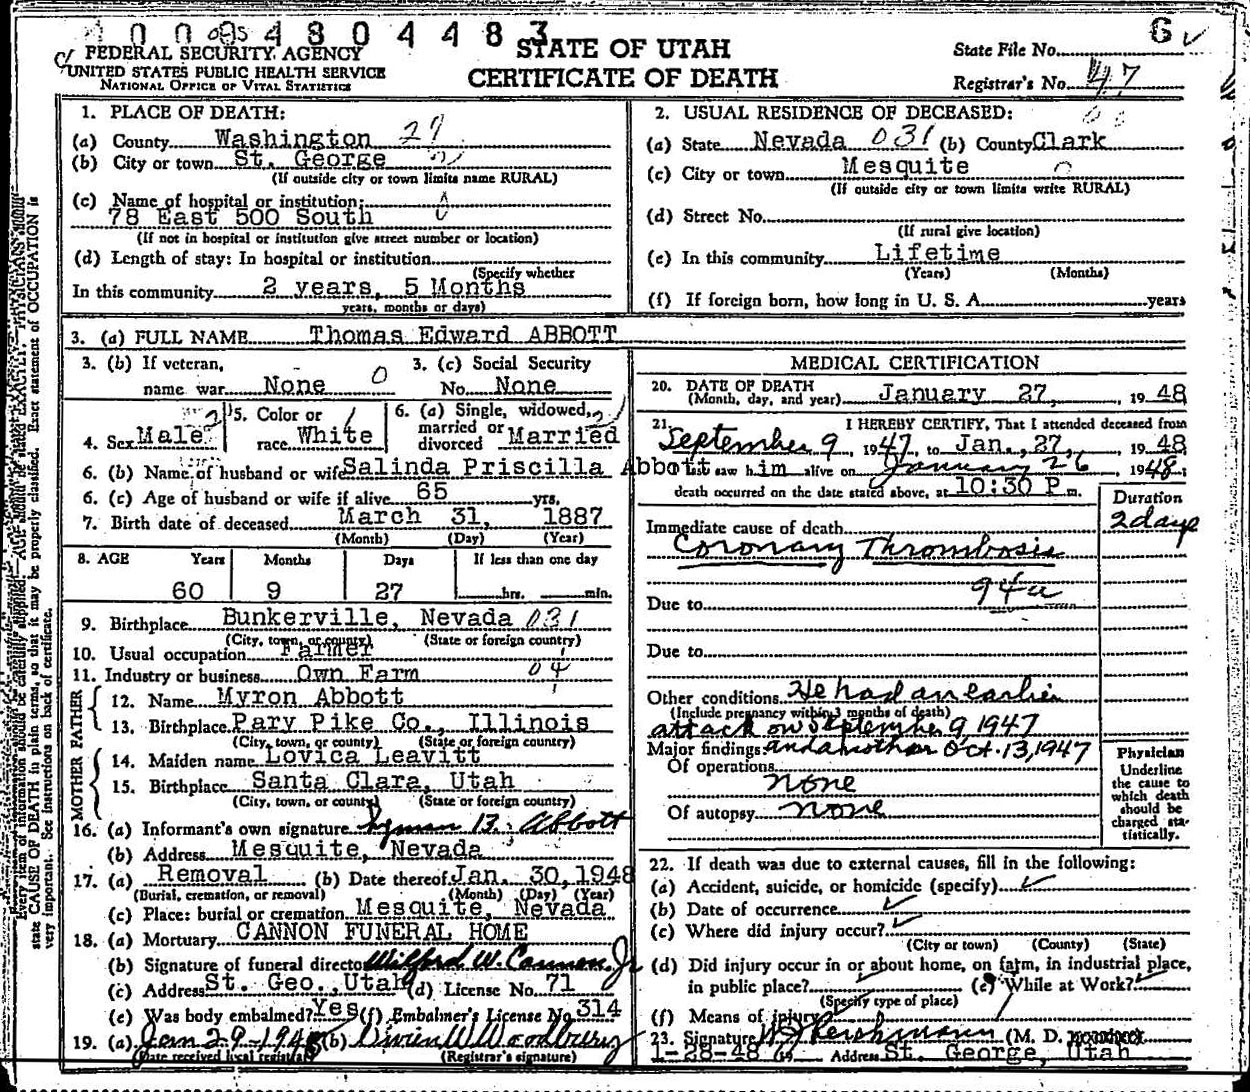 0 0 0 9 4 8 0 4 4 8 3
FEDERAL SECURITY AGENCY
UNITED STATES PUBLIC HEALTH SERVICE
NATIONAL OFFICE OF VITAL STATISTICS
STATE OF UTAH
CERTIFICATE OF DEATH
State File No. 6
Registrar's No. 47
1. PLACE OF DEATH:
(a) County Washington 27
(b) City or town St. George
(If outside city or town limits name RURAL)
(c) Name of hospital or institution:
78 East 500 South
(If not in hospital or institution give street number or location)
(d) Length of stay: In hospital or institution
(Specify whether
In this community 2 years, 5 Months
years, months or days)
2. USUAL RESIDENCE OF DECEASED:
(a) State Nevada 031 (b) County Clark
(c) City or town Mesquite
(If outside city or town limits write RURAL)
(d) Street No.
(If rural give location)
(e) In this community Lifetime
(Years) (Months)
(f) If foreign born, how long in U. S. A. years
3. (a) FULL NAME Thomas Edward ABBOTT
3. (b) If veteran, 3. (c) Social Security
name war None 0 No. None
4. Sex Male 5. Color or race White 6. (a) Single, widowed, married or divorced Married
6. (b) Name of husband or wife Salinda Priscilla Abbott
6. (c) Age of husband or wife if alive 65 yrs.
7. Birth date of deceased March 31, 1887
(Month) (Day) (Year)
8. AGE Years Months Days If less than one day
60 9 27 hrs. min.
9. Birthplace Bunkerville, Nevada 031
(City, town, or county) (State or foreign country)
10. Usual occupation Farmer
11. Industry or business Own Farm 04
FATHER
12. Name Myron Abbott
13. Birthplace Pary Pike Co., Illinois
(City, town, or county) (State or foreign country)
MOTHER
14. Maiden name Lovica Leavitt
15. Birthplace Santa Clara, Utah
(City, town, or county) (State or foreign country)
16. (a) Informant's own signature Lyman B. Abbott
(b) Address Mesquite, Nevada
17. (a) Removal (b) Date thereof Jan. 30, 1948
(Burial, cremation, or removal) (Month) (Day) (Year)
(c) Place: burial or cremation Mesquite, Nevada
18. (a) Mortuary CANNON FUNERAL HOME
(b) Signature of funeral director Wilford W. Cannon Jr
(c) Address St. Geo., Utah (d) License No. 71
(e) Was body embalmed? Yes (f) Embalmer's License No 314
19. (a) Jan 29-1948 (b) Owen W Woodbury
(Date received local registrar) (Registrar's signature)
MEDICAL CERTIFICATION
20. DATE OF DEATH
(Month, day, and year) January 27, 1948
21. I HEREBY CERTIFY, That I attended deceased from
September 9, 1947, to Jan., 27, 1948
saw him alive on January 26 1948;
death occurred on the date stated above, at 10:30 P m.
Duration
Immediate cause of death 2 days
Coronary Thrombosis
94a
Due to
Due to
Other conditions He had an earlier
(Include pregnancy within 3 months of death)
attack on September 9, 1947
Major findings and another Oct. 13, 1947
Of operations
none
Of autopsy none
Physician
Underline
the cause to
which death
should be
charged sta-
tistically.
22. If death was due to external causes, fill in the following:
(a) Accident, suicide, or homicide (specify)
(b) Date of occurrence
(c) Where did injury occur?
(City or town) (County) (State)
(d) Did injury occur in or about home, on farm, in industrial place,
in public place? (e) While at Work?
(Specify type of place)
(f) Means of injury
23. Signature (M. D.
1-28-48 19 Address St. George, Utah
state CAUSE OF DEATH in plain terms, so that it may be properly classified. Exact statement of OCCUPATION is
very important. See instructions on back of certificate.